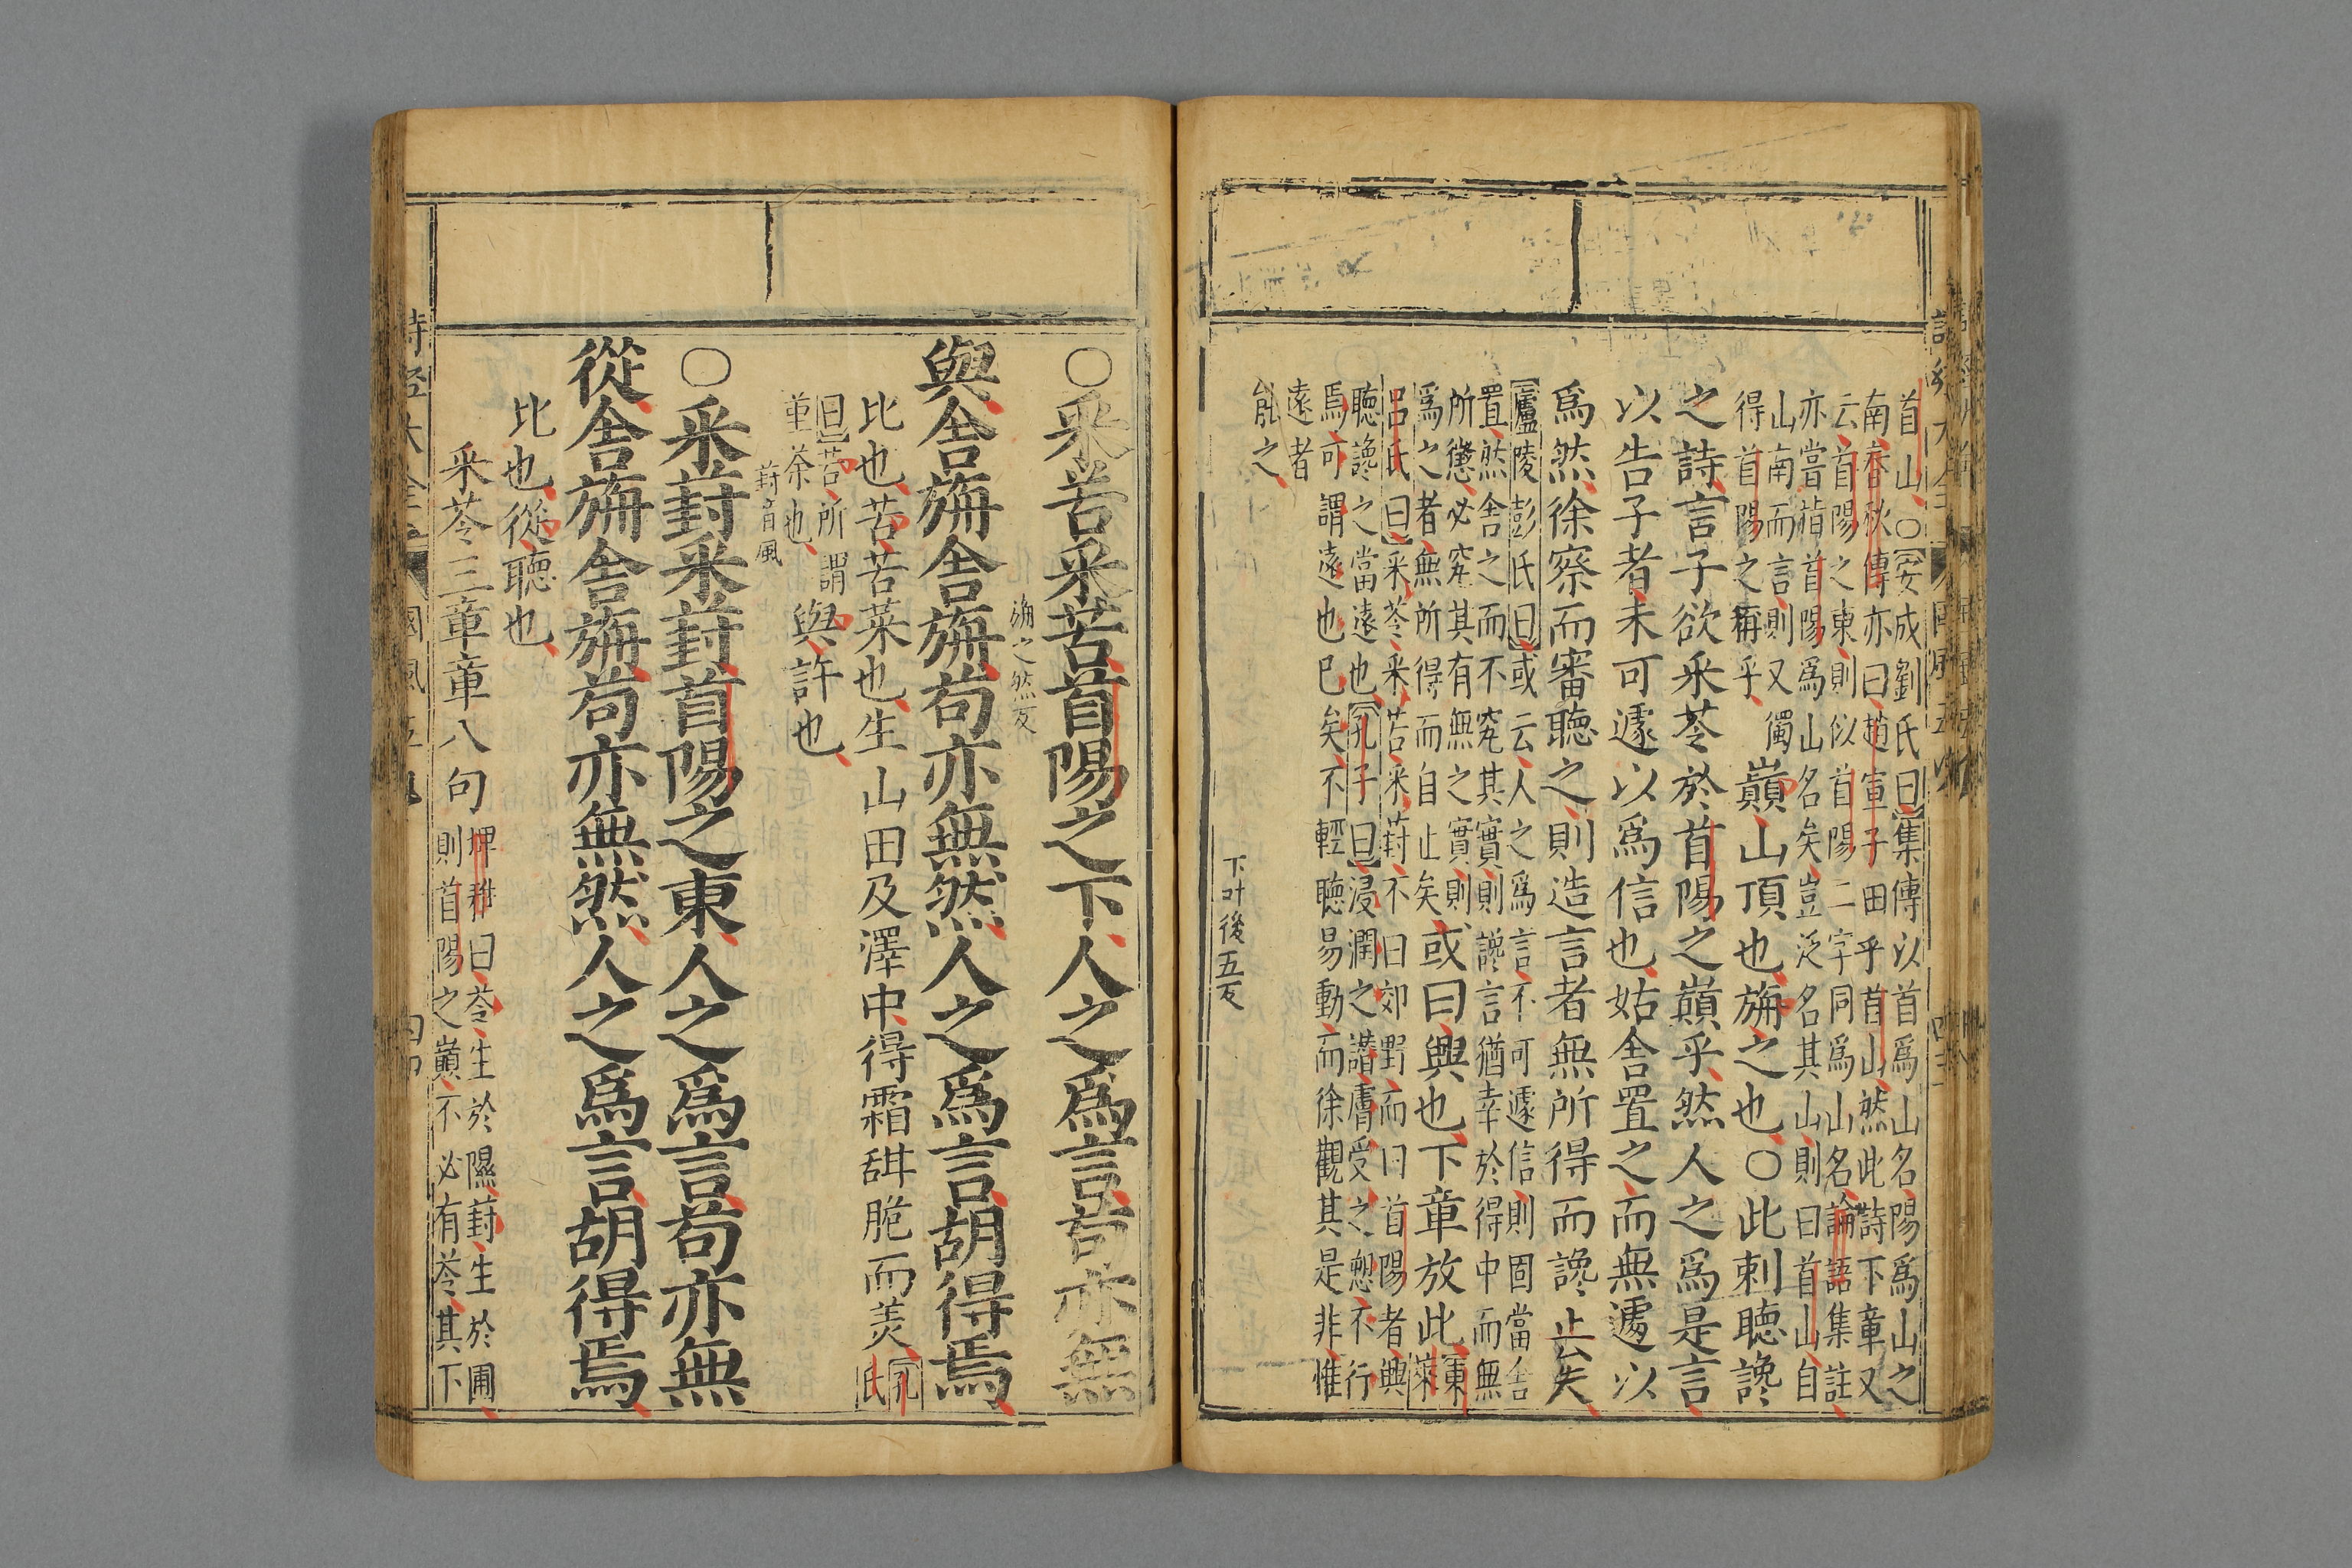 首山○安成劉氏曰集傳以首爲山名陽爲山之
南春秋傳亦曰趙宣子田乎首山然此詩下章又
云首陽之東則似首陽二字同爲山名論語集註
亦嘗指首陽爲山名矣豈泛名其山則曰首山自
山南而言則又獨
得首陽之稱乎
巔山頂也旃之也○此刺聽讒
之詩言子欲采苓於首陽之巔乎然人之爲是言
以告子者未可遽以爲信也姑舍置之而無遽以
爲然徐察而審聽之則造言者無所得而讒止矣
廬陵彭氏曰或云人之爲言不可遽信則固當舍
置然舍之而不究其實則讒言猶幸於得中而無
所懲必究其有無之實則
爲之者無所得而自止矣
或曰興也下章放此
東萊
呂氏曰采苓采苦采葑不曰郊野而曰首陽者興
聽讒之當遠也孔子曰浸潤之譖膚受之愬不行
焉可謂遠也已矣不輕聽易動而徐觀其是非惟
遠者
能之
下叶後五反
○采苦采苦首陽之下人之爲言苟亦無
旃之然反
與舍旃舍旃苟亦無然人之爲言胡得焉
比也苦苦菜也生山田及澤中得霜甜脆而美
孔氏
曰苦所謂
堇荼也
與許也
葑音風
○采葑采葑首陽之東人之爲言苟亦無
從舍旃舍旃苟亦無然人之爲言胡得焉
比也從聽也
采苓三章章八句
埤雅曰苓生於隰葑生於圃
則首陽之巔不必有苓其下
詩經大全
國風五